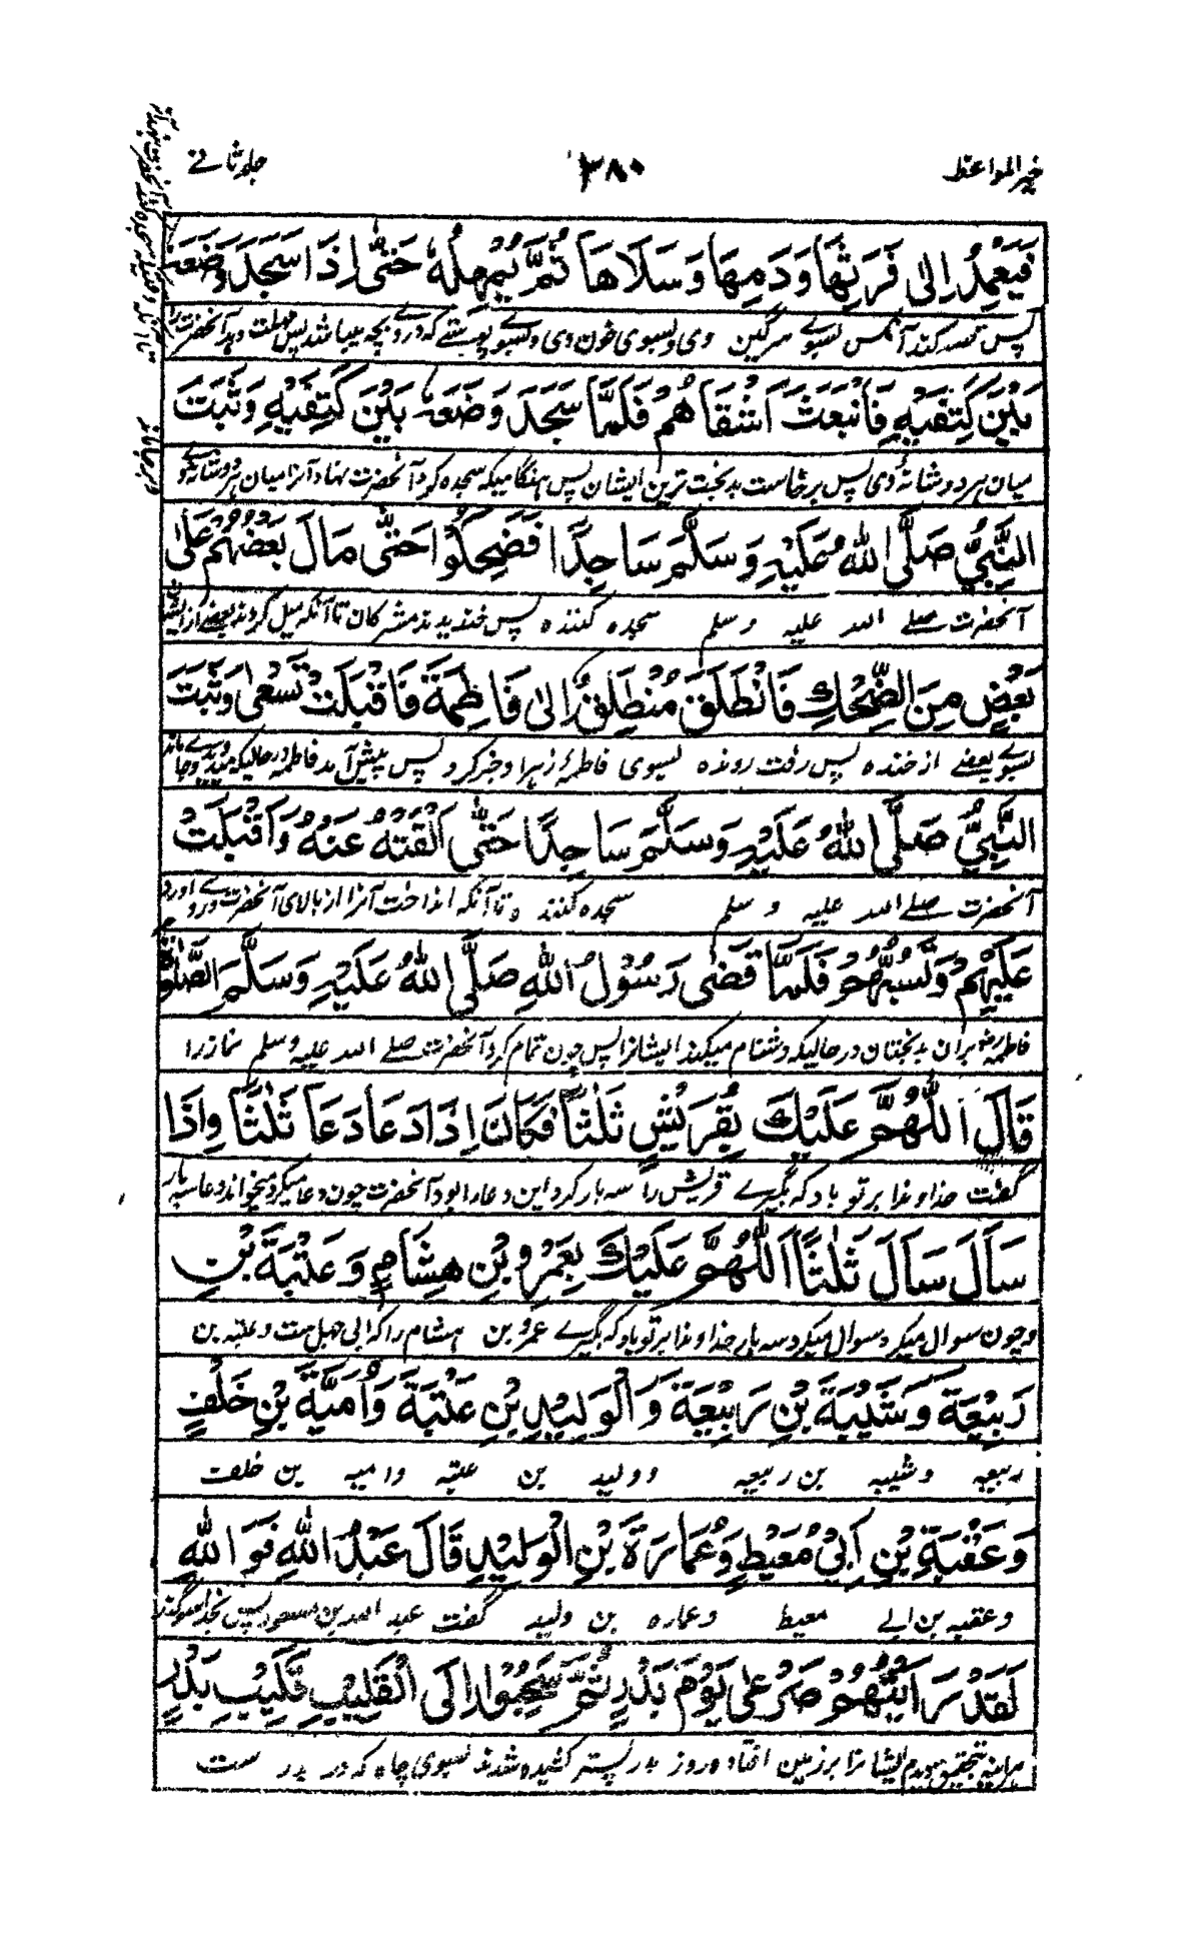 خیر المواعظ ۳۸۰ جلد ثانے
فَيَعْمِدُ اِلٰى فَرَثِهَا وَدَمِهَا وَسَلَاهَا ثُمَّ يُمْهِلُهٗ حَتّٰى اِذَا سَجَدَ وَضَعَهٗ
پس قصد کند آنکس بسوے سرگین وی و بسوی خون وی و بسوے پوستے که در وے بچه میباشد پس مهلت دهد آنحضرت را
بَيْنَ كَتِفَيْهِ فَانْبَعَثَ اَشْقَاهُمْ فَلَمَّا سَجَدَ وَضَعَهٗ بَيْنَ كَتِفَيْهِ وَثَبَتَ
میان هر دو شانهٔ وی پس برخاست بدبخت ترین ایشان پس هنگامیکه سجده کرد آنحضرت نهاد آنرا میان هر دو شانهٔ
النَّبِيُّ صَلَّى اللهُ عَلَيْهِ وَسَلَّمَ سَاجِدًا فَضَحِكُوْا حَتّٰى مَالَ بَعْضُهُمْ عَلٰى
آنحضرت صلے الله علیه وسلم سجده کننده پس خندیدند مشرکان تا آنکه میل کردند بعضے از ایشان
بَعْضٍ مِنَ الضِّحْكِ فَانْطَلَقَ مُنْطَلِقٌ اِلٰى فَاطِمَةَ فَاَقْبَلَتْ تَسْعٰى وَثَبَتَ
بسوے بعضے از خنده پس رفت رونده بسوی فاطمهٔ زهرا و خبر کرد پس پیش آمد فاطمه در حالیکه
النَّبِيُّ صَلَّى اللهُ عَلَيْهِ وَسَلَّمَ سَاجِدًا حَتّٰى اَلْقَتْهُ عَنْهُ وَاَقْبَلَتْ
آنحضرت صلے الله علیه وسلم سجده کننده تا آنکه انداخت آنرا از بالای آنحضرت و رو آورد
عَلَيْهِمْ وَتَسُبُّهُمْ فَلَمَّا قَضٰى رَسُوْلُ اللهِ صَلَّى اللهُ عَلَيْهِ وَسَلَّمَ الصَّلٰوةَ
فاطمه بران بدبختان در حالیکه دشنام میکند ایشانرا پس چون تمام کرد آنحضرت صلے الله علیه وسلم نماز را
قَالَ اَللّٰهُمَّ عَلَيْكَ بِقُرَيْشٍ ثَلٰثًا فَكَانَ اِذَا دَعَا دَعَا ثَلٰثًا وَاِذَا
گفت خداوندا بر تو باد که بگیرے قریش را سه بار کرد این دعا را و بود آنحضرت چون دعا میکرد میخواند دعا سه بار
سَاَلَ سَاَلَ ثَلٰثًا اَللّٰهُمَّ عَلَيْكَ بِعَمْرِو بْنِ هِشَامٍ وَعُتْبَةَ بْنِ
و چون سوال میکرد سوال میکرد سه بار خداوندا بر تو باد که بگیرے عمرو بن هشام را که ابی جهل ست و عتبه بن
رَبِيْعَةَ وَشَيْبَةَ بْنِ رَبِيْعَةَ وَالْوَلِيْدِ بْنِ عُتْبَةَ وَاُمَيَّةَ بْنِ خَلْفٍ
ربیعه و شیبه بن ربیعه و ولید بن عتبه و امیه بن خلف
وَعُقْبَةَ بْنِ اَبِيْ مُعَيْطٍ وَعُمَارَةَ بْنِ الْوَلِيْدِ قَالَ عَبْدُ اللهِ فَوَ اللهِ
و عقبه بن ابے معیط و عماره بن ولید گفت عبد الله بن مسعود پس بخدا سوگند
لَقَدْ رَاَيْتُهُمْ صَرْعٰى يَوْمَ بَدْرٍ ثُمَّ سُحِبُوْا اِلَى الْقَلِيْبِ قَلِيْبِ بَدْرٍ
هر آینه بتحقیق دیدم ایشانرا بر زمین افتاده روز بدر پستر کشیده شدند بسوی چاه که در بدر ست